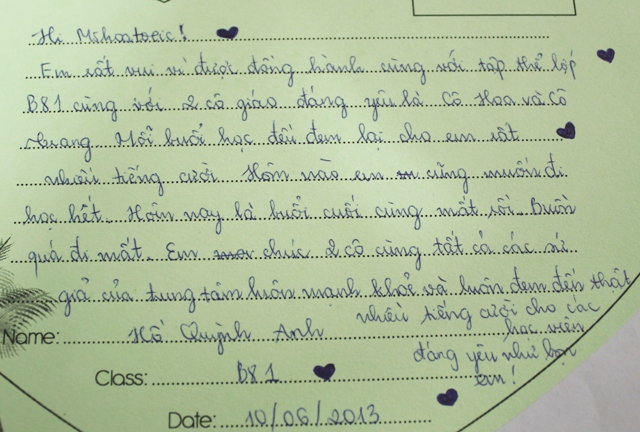 Hi Mshoatoeic!
Em rất vui vì được đồng hành cùng với tập thể lớp
B81 cùng với 2 cô giáo đáng yêu là Cô Hoa và Cô
Trang. Mỗi buổi học đều đem lại cho em rất
nhiều tiếng cười. Hôm nào em cũng muốn đi
học hết. Hôm nay là buổi cuối cùng mất rồi. Buồn
quá đi mất. Em chúc 2 cô cùng tất cả các sứ
giả của trung tâm luôn mạnh khỏe và luôn đem đến thật
nhiều tiếng cười cho các
học viên
đáng yêu như bọn
em!
Name: Hồ Quỳnh Anh
Class: B81
Date: 10/06/2013